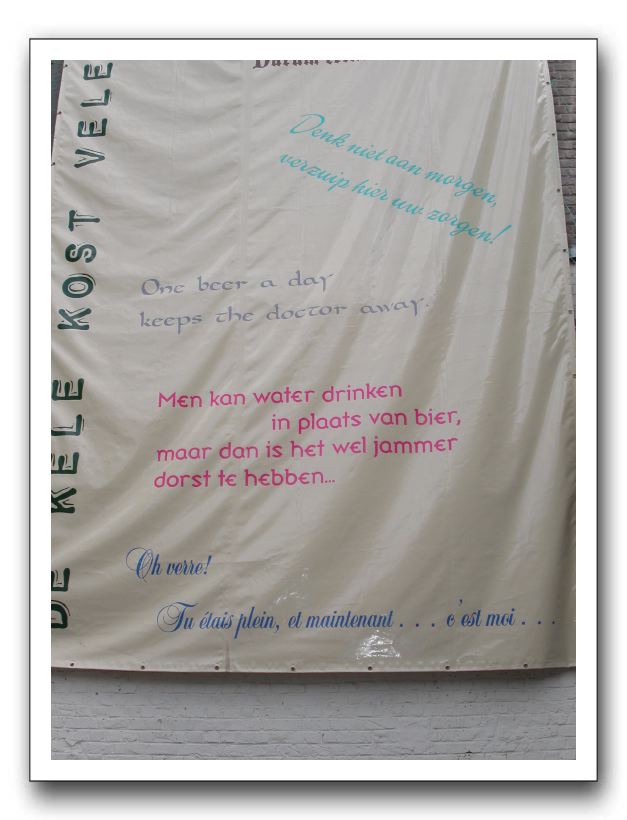 Denk niet aan morgen,
verzuip hier uw zorgen!
One beer a day
keeps the doctor away.
Men kan water drinken
in plaats van bier,
maar dan is het wel jammer
dorst te hebben...
Oh verre!
Tu étais plein, et maintenant . . . c'est moi . . .
DE KELE KOST VELE